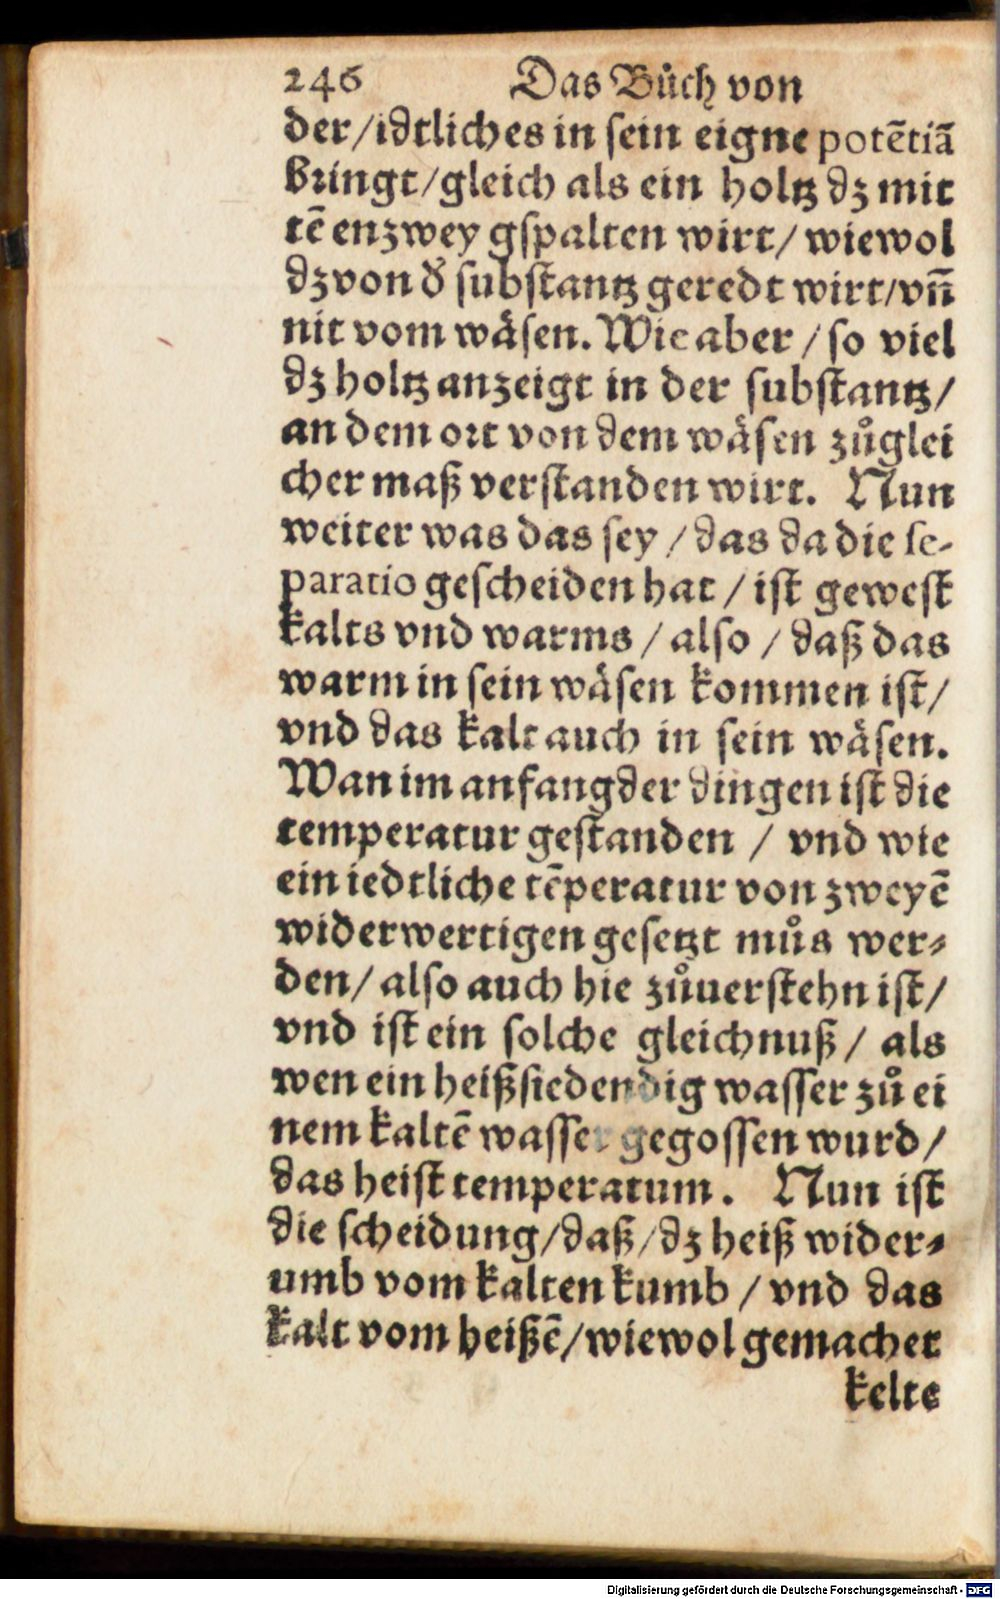 246 Das Bůch von
der/idtliches in sein eigne potētiā
bringt/gleich als ein holtz dz mit
tē enzwey gspalten wirt/ wiewol
dz von d᷑ substantz geredt wirt/vn̄
nit vom wäsen. Wie aber / so viel
dz holtz anzeigt in der substantz/
an dem ort von dem wäsen zůglei
cher maß verstanden wirt. Nun
weiter was das sey / das da die se-
paratio gescheiden hat / ist gewest
kalts vnd warms / also / daß das
warm in sein wäsen kommen ist/
vnd das kalt auch in sein wäsen.
Wan im anfang der dingen ist die
temperatur gestanden / vnd wie
ein iedtliche tēperatur von zweyē
widerwertigen gesetzt můs wer-
den/ also auch hie zůuerstehn ist/
vnd ist ein solche gleichnuß/ als
wen ein heißsiedendig wasser zů ei
nem kaltē wasser gegossen wurd/
das heist temperatum. Nun ist
die scheidung/daß/dz heiß wider-
umb vom kalten kumb / vnd das
kalt vom heißē/wiewol gemachet
kelte
Digitalisierung gefördert durch die Deutsche Forschungsgemeinschaft - DFG